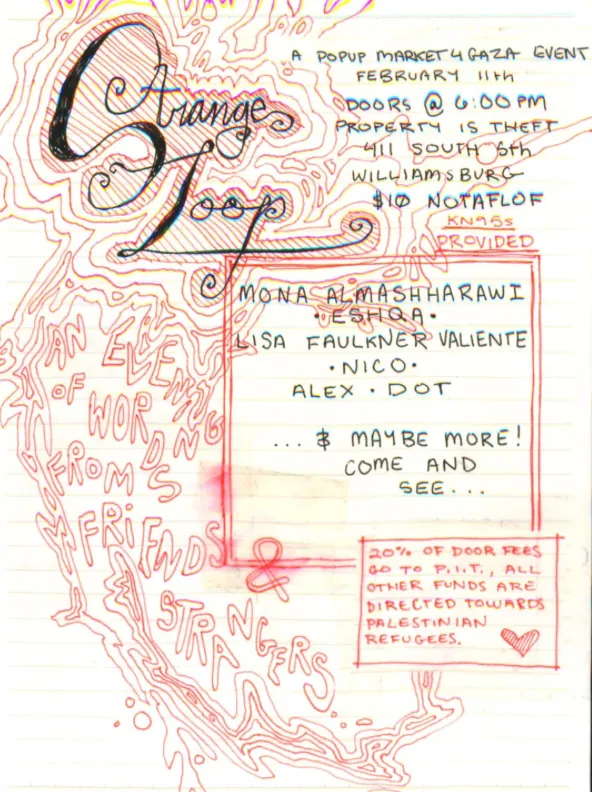 Strange
Loop
A POPUP MARKET 4 GAZA EVENT
FEBRUARY 11th
DOORS @ 6:00 PM
PROPERTY IS THEFT
411 SOUTH 5th
WILLIAMSBURG
$10 NOTAFLOF
KN95s
PROVIDED
MONA ALMASHHARAWI
• ESHQA •
LISA FAULKNER VALIENTE
• NICO •
ALEX • DOT
... & MAYBE MORE!
COME AND
SEE...
AN EVENING
OF WORDS
FROM
FRIENDS
&
STRANGERS
20% OF DOOR FEES
GO TO P.I.T., ALL
OTHER FUNDS ARE
DIRECTED TOWARDS
PALESTINIAN
REFUGEES.